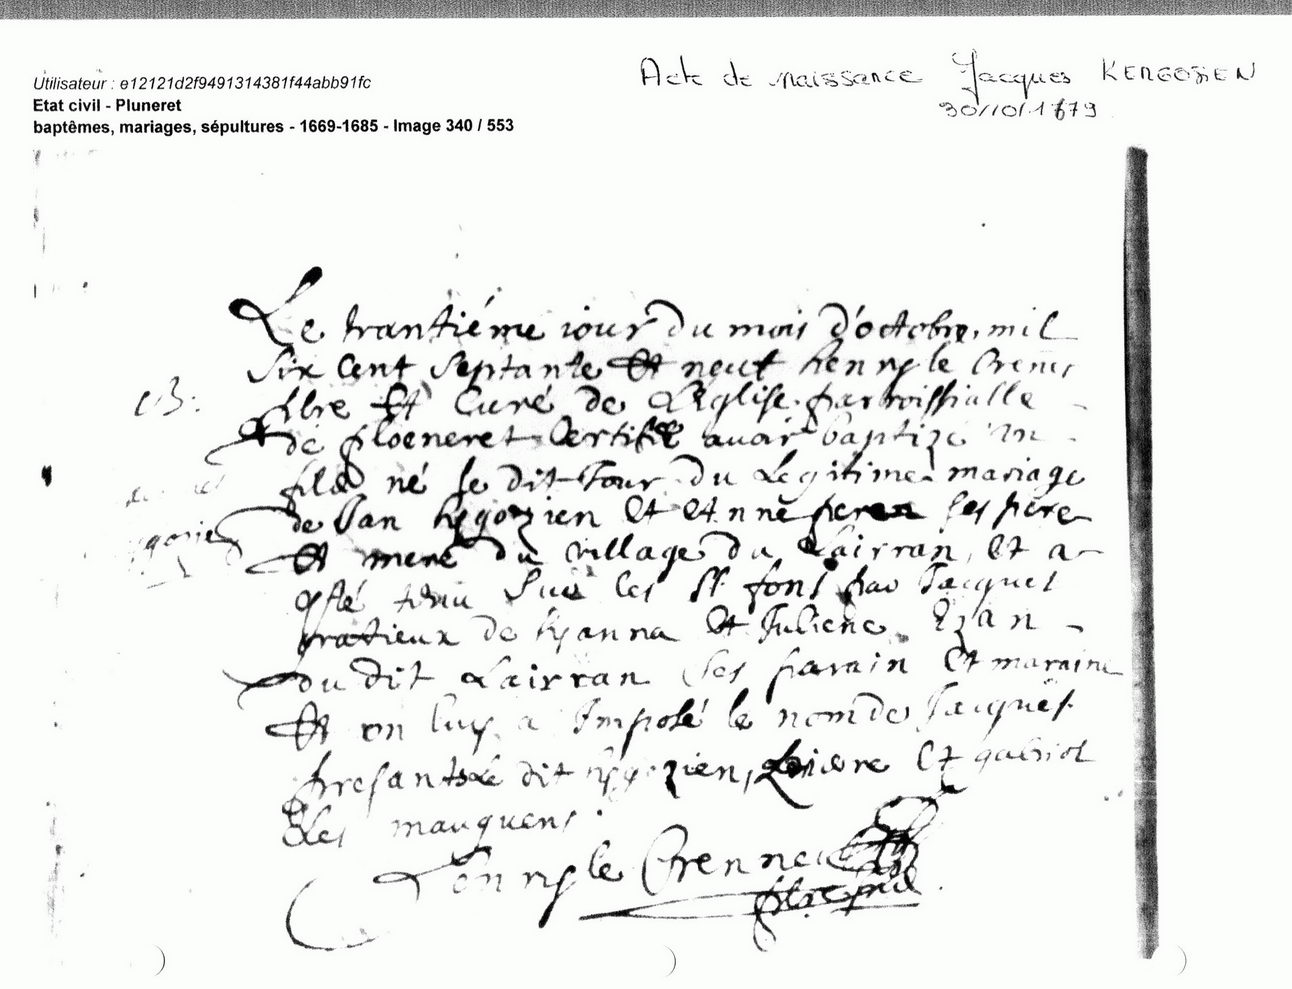 Utilisateur : e12121d2f9491314381f44abb91fc
Etat civil - Pluneret
baptêmes, mariages, sépultures - 1669-1685 - Image 340 / 553
Acte de naissance Jacques KERGOSIEN
30/10/1679
Le trantiéme iour du mois d'octobre, mil
Six Cent Septante Et neuf henry le Crenn
pbre Et Curé de L'Eglise parroissialle
de ploeneret Certifie avoir baptizé un
fils né le dit Jour du Legitime mariage
de Jan kgozien Et Anne ses pere
Et mere du village du Lairran, Et a
esté tenu Sur les Sts fons par Jacques
de kjanna Et Juliene Ezan
du dit Lairran Ses parain Et maraine
Et on luy a Imposé le nom de Jacques
presants Le dit kgozien, Et gabriel
Les mauguens
henry le Crenn